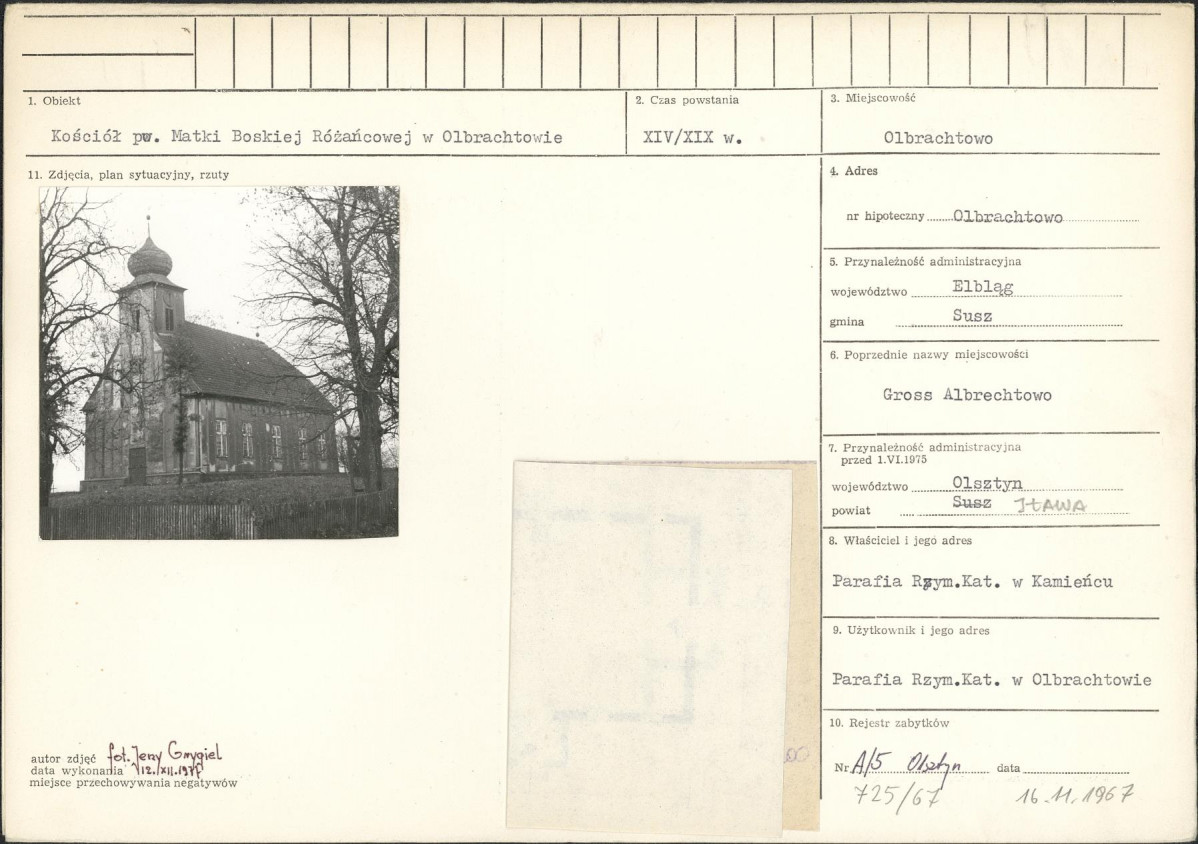 1. Obiekt
Kościół pw. Matki Boskiej Różańcowej w Olbrachtowie
2. Czas powstania
XIV/XIX w.
3. Miejscowość
Olbrachtowo
11. Zdjęcia, plan sytuacyjny, rzuty
4. Adres
nr hipoteczny Olbrachtowo
5. Przynależność administracyjna
województwo Elbląg
gmina Susz
6. Poprzednie nazwy miejscowości
Gross Albrechtowo
7. Przynależność administracyjna
przed 1.VI.1975
województwo Olsztyn
powiat Susz IŁAWA
8. Właściciel i jego adres
Parafia Rzym.Kat. w Kamieńcu
9. Użytkownik i jego adres
Parafia Rzym.Kat. w Olbrachtowie
10. Rejestr zabytków
Nr A/5 Olsztyn data
725/67 16.11.1967
autor zdjęć fot. Jerzy Grygiel
data wykonania 12.XII.1977
miejsce przechowywania negatywów